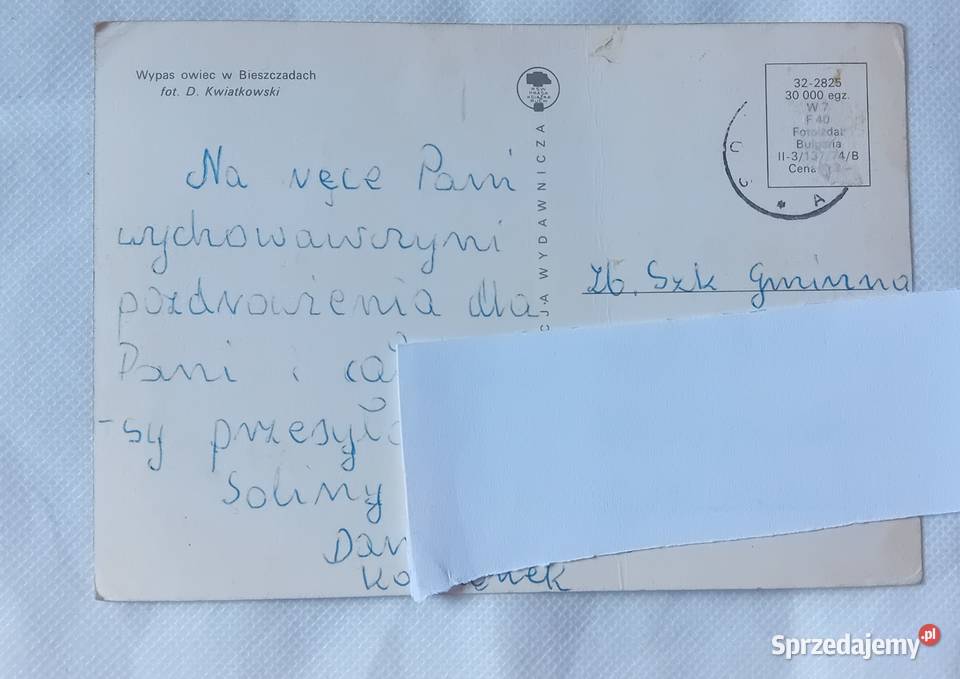 Wypas owiec w Bieszczadach
fot. D. Kwiatkowski
RSW
PRASA
KSIĄŻKA
RUCH
CJA WYDAWNICZA
32-2825
30 000 egz.
W 7
F 40
Fotoizdat
Bulgaria
II-3/137/74/B
Cena
Na ręce Pani
wychowawczyni
pozdrowienia dla
Pani i
-sy
Soliny
Zb. Szk Gminna
Sprzedajemy.pl